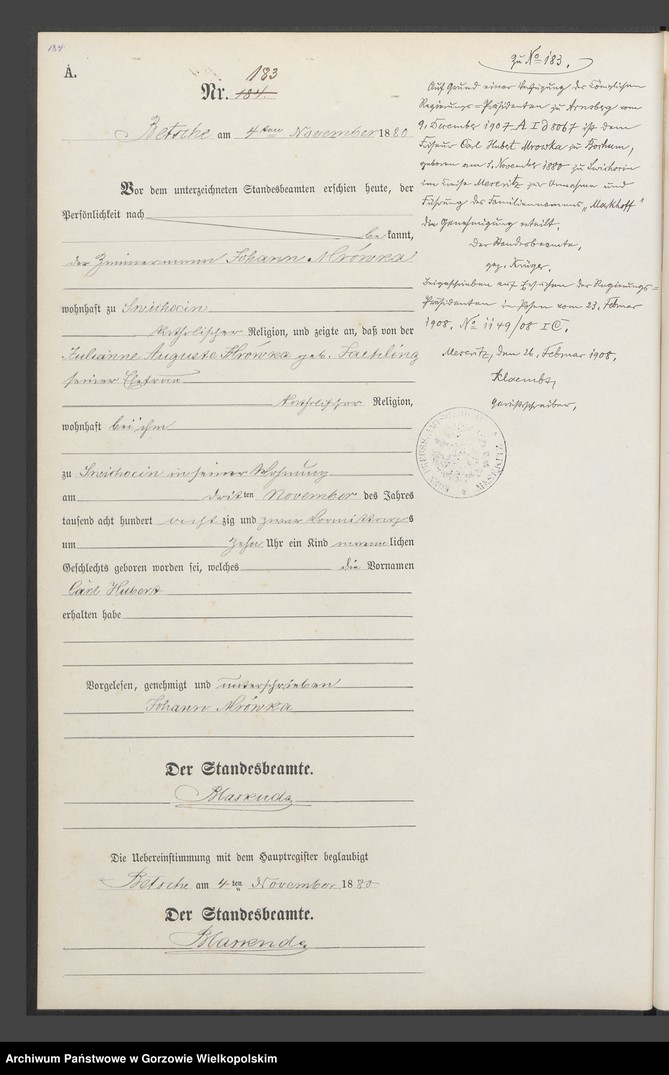 184
A.
183
Nr. 184.
Betsche am 4ten November 1880
Vor dem unterzeichneten Standesbeamten erschien heute, der
Persönlichkeit nach
bekannt,
der Zimmermann Johann Mrówka
wohnhaft zu Swichocin
katholischer Religion, und zeigte an, daß von der
Julianne Auguste Mrówka geb.
seiner Ehefrau
katholischer Religion,
wohnhaft bei ihm
zu Swichocin in seiner Wohnung
am dritten November des Jahres
tausend acht hundert achtzig und zwar Vormittags
um zehn Uhr ein Kind männlichen
Geschlechts geboren worden sei, welches die Vornamen
Carl Hubert
erhalten habe
Vorgelesen, genehmigt und unterschrieben
Johann Mrówka
Der Standesbeamte.
Die Uebereinstimmung mit dem Hauptregister beglaubigt
Betsche am 4ten November 1880
Der Standesbeamte.
Zu No 183.
Auf Grund einer Verfügung des Königlichen
Regierungs-Präsidenten zu Arnsberg vom
9. Dezember 1907 A I 8067 ist dem
Friseur Carl Hubert Mrowka zu Bochum,
geboren am 3. November 1880 zu Swichocin
im Kreise Meseritz zur Annahme und
Führung des Familiennamens „Markhoff"
die Genehmigung erteilt.
Der Standesbeamte,
gez. Krüger.
Beigeschrieben auf Ersuchen des Regierungs-
Präsidenten in Posen vom 23. Februar
1908. No 1149/08 I C.
Meseritz, den 26. Februar 1908.
Gerichtsschreiber,
Archiwum Państwowe w Gorzowie Wielkopolskim